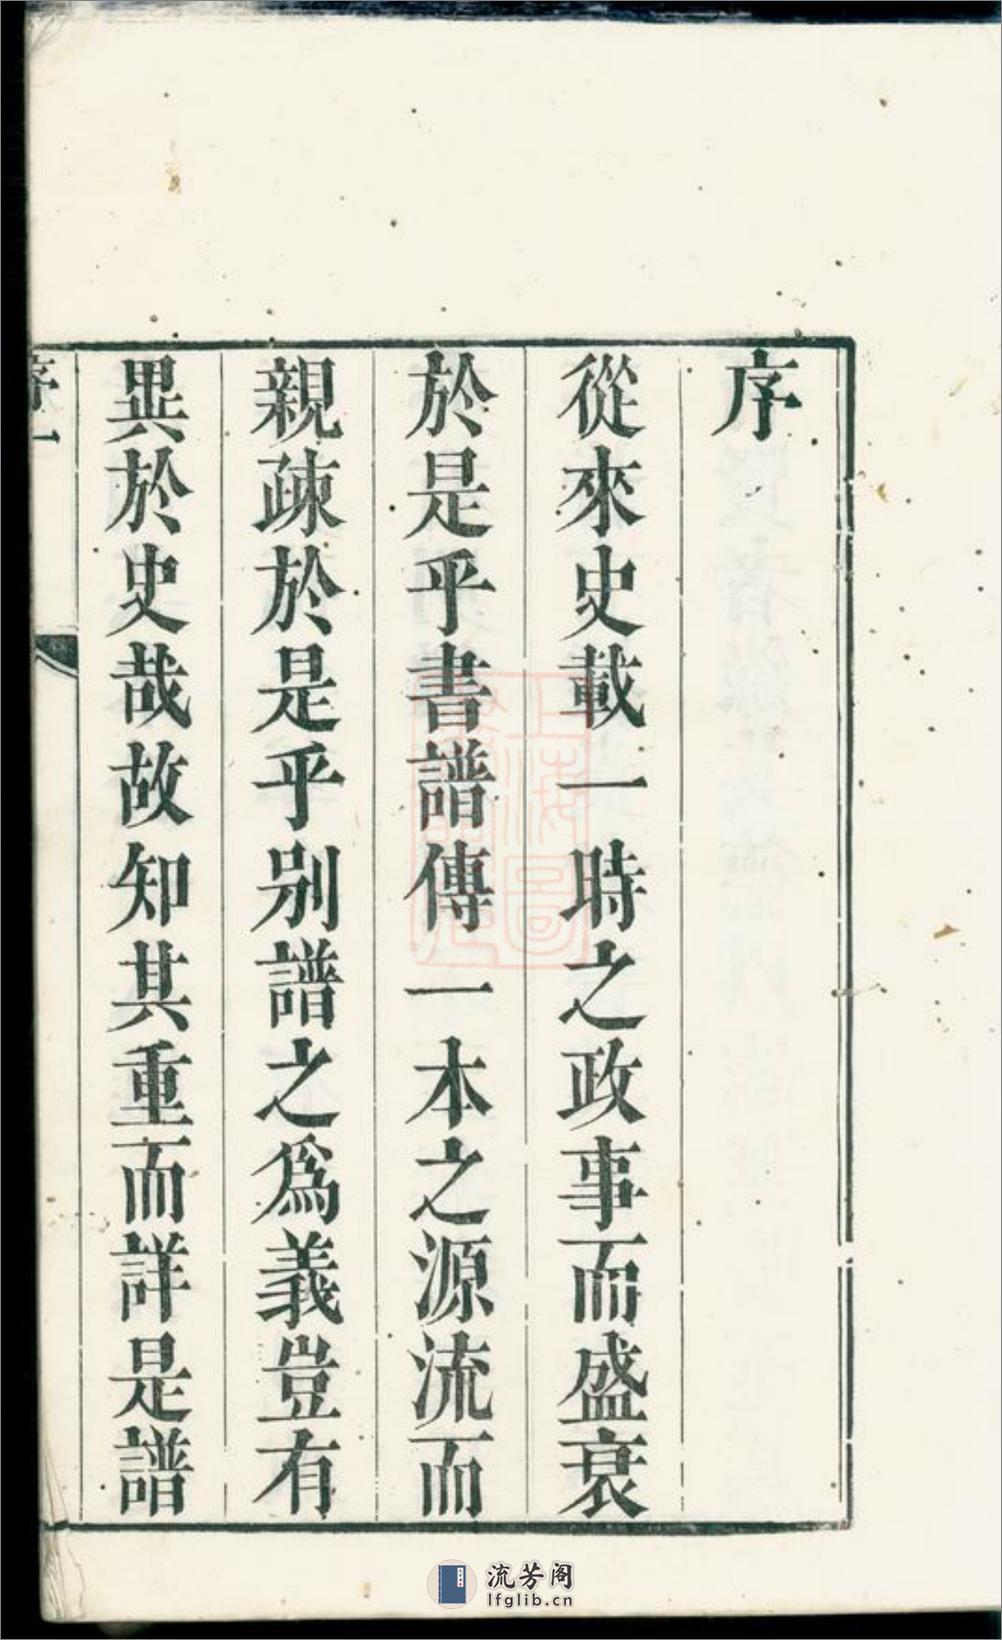 序
從來史載一時之政事而盛衰
於是乎書譜傳一本之源流而
親疎於是乎别譜之爲義豈有
異於史哉故知其重而詳是譜
序 一
上海圖
流芳阁
lfglib.cn